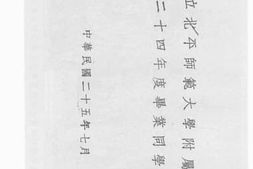 立北平師範大學附屬
二十四年度畢業同學
中華民國二十五年七月